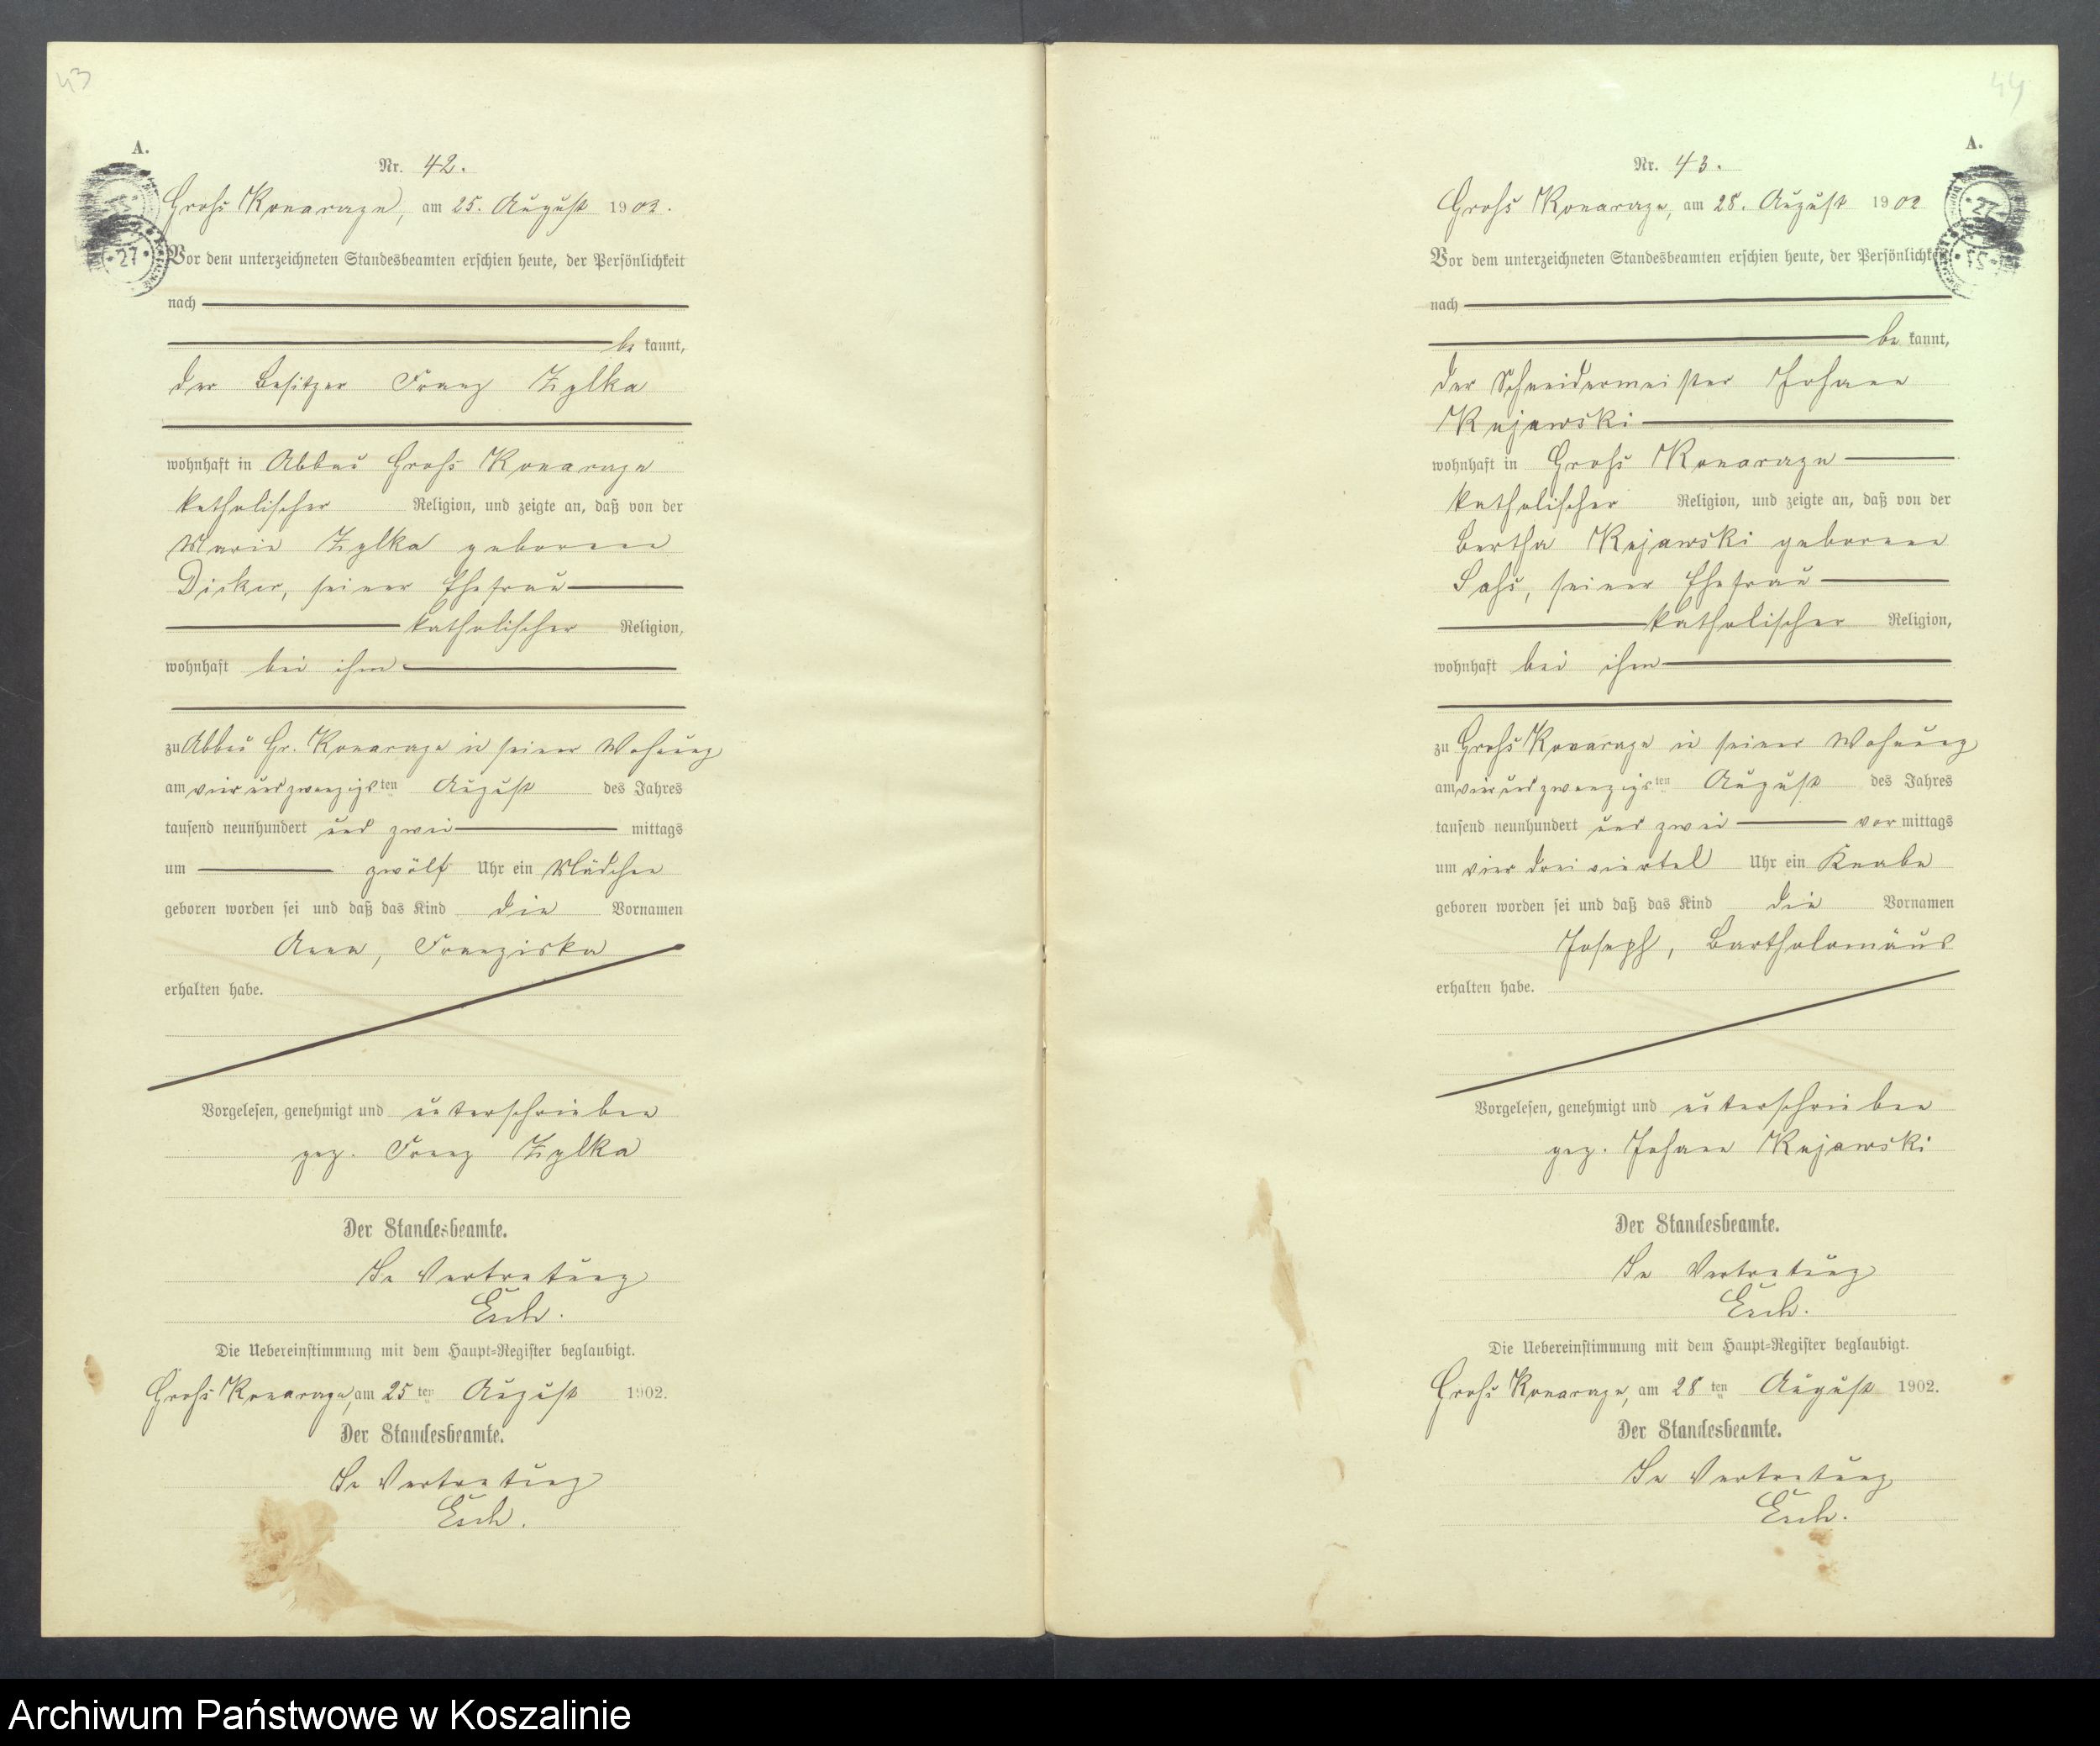 43
A.
Nr. 42.
Groß Konarzyn, am 25. August 1902.
Vor dem unterzeichneten Standesbeamten erschien heute, der Persönlichkeit
nach
be kannt,
der Besitzer Franz Zylka
wohnhaft in Abbau Groß Konarzyn
katholischer Religion, und zeigte an, daß von der
Marie Zylka geborene
seiner Ehefrau
katholischer Religion,
wohnhaft bei ihm
zu Abbau Gr. Konarzyn in seiner Wohnung
am vier und zwanzigsten August des Jahres
tausend neunhundert und zwei mittags
um zwölf Uhr ein Mädchen
geboren worden sei und daß das Kind die Vornamen
Anna, Franziska
erhalten habe.
Vorgelesen, genehmigt und unterschrieben
gez. Franz Zylka
Der Standesbeamte.
In Vertretung
Esch.
Die Uebereinstimmung mit dem Haupt-Register beglaubigt.
Groß Konarzyn, am 25 ten August 1902.
Der Standesbeamte.
In Vertretung
Esch.
44
A.
Nr. 43.
Groß Konarzyn, am 28. August 1902
Vor dem unterzeichneten Standesbeamten erschien heute, der Persönlichkeit
nach
be kannt,
der Schneidermeister Johann
Kujawski
wohnhaft in Groß Konarzyn
katholischer Religion, und zeigte an, daß von der
Bertha Kujawski geborene
seiner Ehefrau
katholischer Religion,
wohnhaft bei ihm
zu Groß Konarzyn in seiner Wohnung
am vier und zwanzigsten August des Jahres
tausend neunhundert und zwei vor mittags
um vier drei viertel Uhr ein Knabe
geboren worden sei und daß das Kind die Vornamen
Joseph, Bartholomäus
erhalten habe.
Vorgelesen, genehmigt und unterschrieben
gez. Johann Kujawski
Der Standesbeamte.
In Vertretung
Esch.
Die Uebereinstimmung mit dem Haupt-Register beglaubigt.
Groß Konarzyn, am 28 ten August 1902.
Der Standesbeamte.
In Vertretung
Esch.
Archiwum Państwowe w Koszalinie